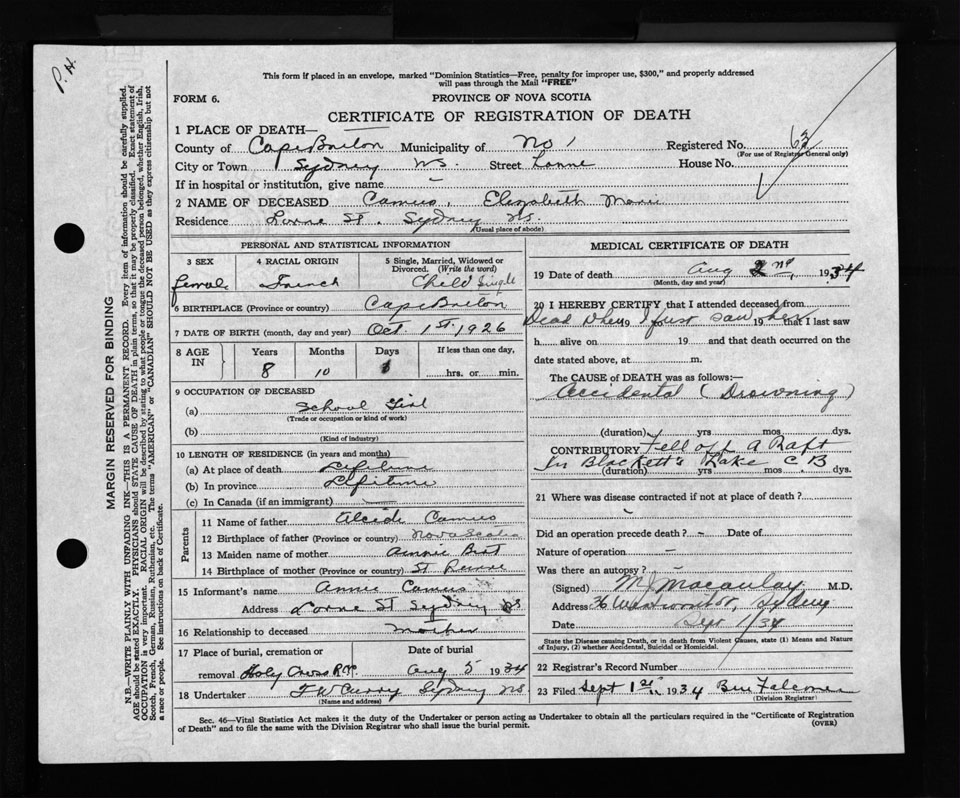 P. H.
This form if placed in an envelope, marked "Dominion Statistics—Free, penalty for improper use, $300," and properly addressed
will pass through the Mail "FREE"
FORM 6.
PROVINCE OF NOVA SCOTIA
CERTIFICATE OF REGISTRATION OF DEATH
1 PLACE OF DEATH—
County of Cape Breton Municipality of No 1 Registered No. 62
(For use of Registrar General only)
City or Town Sydney NS. Street Lorne House No.
If in hospital or institution, give name –
2 NAME OF DECEASED Camus, Elizabeth Marie
Residence Lorne St. Sydney NS.
(Usual place of abode)
PERSONAL AND STATISTICAL INFORMATION
3 SEX
female
4 RACIAL ORIGIN
French
5 Single, Married, Widowed or
Divorced. (Write the word)
Child Single
6 BIRTHPLACE (Province or country) Cape Breton
7 DATE OF BIRTH (month, day and year) Oct. 1st. 1926
8 AGE IN
Years Months Days If less than one day,
8 10 1 hrs. or min.
9 OCCUPATION OF DECEASED
(a) School Girl
(Trade or occupation or kind of work)
(b)
(Kind of industry)
10 LENGTH OF RESIDENCE (in years and months)
(a) At place of death Lifetime
(b) In province Lifetime
(c) In Canada (if an immigrant)
Parents
11 Name of father Alcid Camus
12 Birthplace of father (Province or country) Nova Scotia
13 Maiden name of mother Annie
14 Birthplace of mother (Province or country) St
15 Informant's name Annie Camus
Address Lorne St Sydney NS
16 Relationship to deceased mother
17 Place of burial, cremation or
removal Holy Cross R.C.
Date of burial
Aug 5 1934
18 Undertaker F W Curry Sydney NS
(Name and address)
MEDICAL CERTIFICATE OF DEATH
19 Date of death Aug 2nd, 1934
(Month, day and year)
20 I HEREBY CERTIFY that I attended deceased from
Dead when 19 I first saw her 19 that I last saw
h alive on 19 and that death occurred on the
date stated above, at m.
The CAUSE OF DEATH was as follows:—
Accidental (Drowning)
(duration) yrs mos dys.
CONTRIBUTORY Fell off a Raft
In Blackett's Lake C B
(duration) yrs mos dys.
21 Where was disease contracted if not at place of death?
Did an operation precede death? – Date of
Nature of operation –
Was there an autopsy?
(Signed) M J Macaulay M.D.
Address 36 Sydney
Date Sept 1/34
State the Disease causing Death, or in death from Violent Causes, state (1) Means and Nature
of Injury, (2) whether Accidental, Suicidal or Homicidal.
22 Registrar's Record Number
23 Filed Sept 1st 1934 Ben Falconer
(Division Registrar)
Sec. 46—Vital Statistics Act makes it the duty of the Undertaker or person acting as Undertaker to obtain all the particulars required in the "Certificate of Registration
of Death" and to file the same with the Division Registrar who shall issue the burial permit.
(OVER)
MARGIN RESERVED FOR BINDING
N.B.—WRITE PLAINLY WITH UNFADING INK—THIS IS A PERMANENT RECORD. Every item of information should be carefully supplied.
AGE should be stated EXACTLY. PHYSICIANS should STATE CAUSE OF DEATH in plain terms, so that it may be properly classified. Exact statement of
OCCUPATION is very important. RACIAL ORIGIN will be described by stating to what people or tongue the deceased person belonged, whether English, Irish,
Scotch, French, German, Russian, Ruthenian, etc. The terms "AMERICAN" or "CANADIAN" SHOULD NOT BE USED as they express citizenship but not
a race or people. See instructions on back of Certificate.